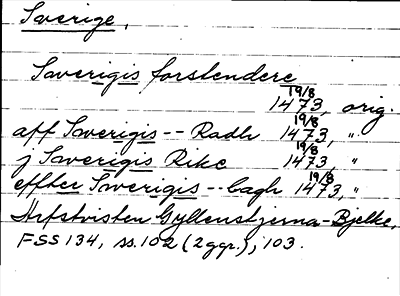 Sverige,
Swerigis forstendere
19/8
1473, orig.
19/8
aff Swerigis -- Radh 1473, "
19/8
j Swerigis Rike 1473, "
19/8
effter Swerigis -- lagh 1473, "
Arfstvisten Gyllenstjerna-Bjelke,
FSS 134, ss. 102 (2 ggr.), 103.